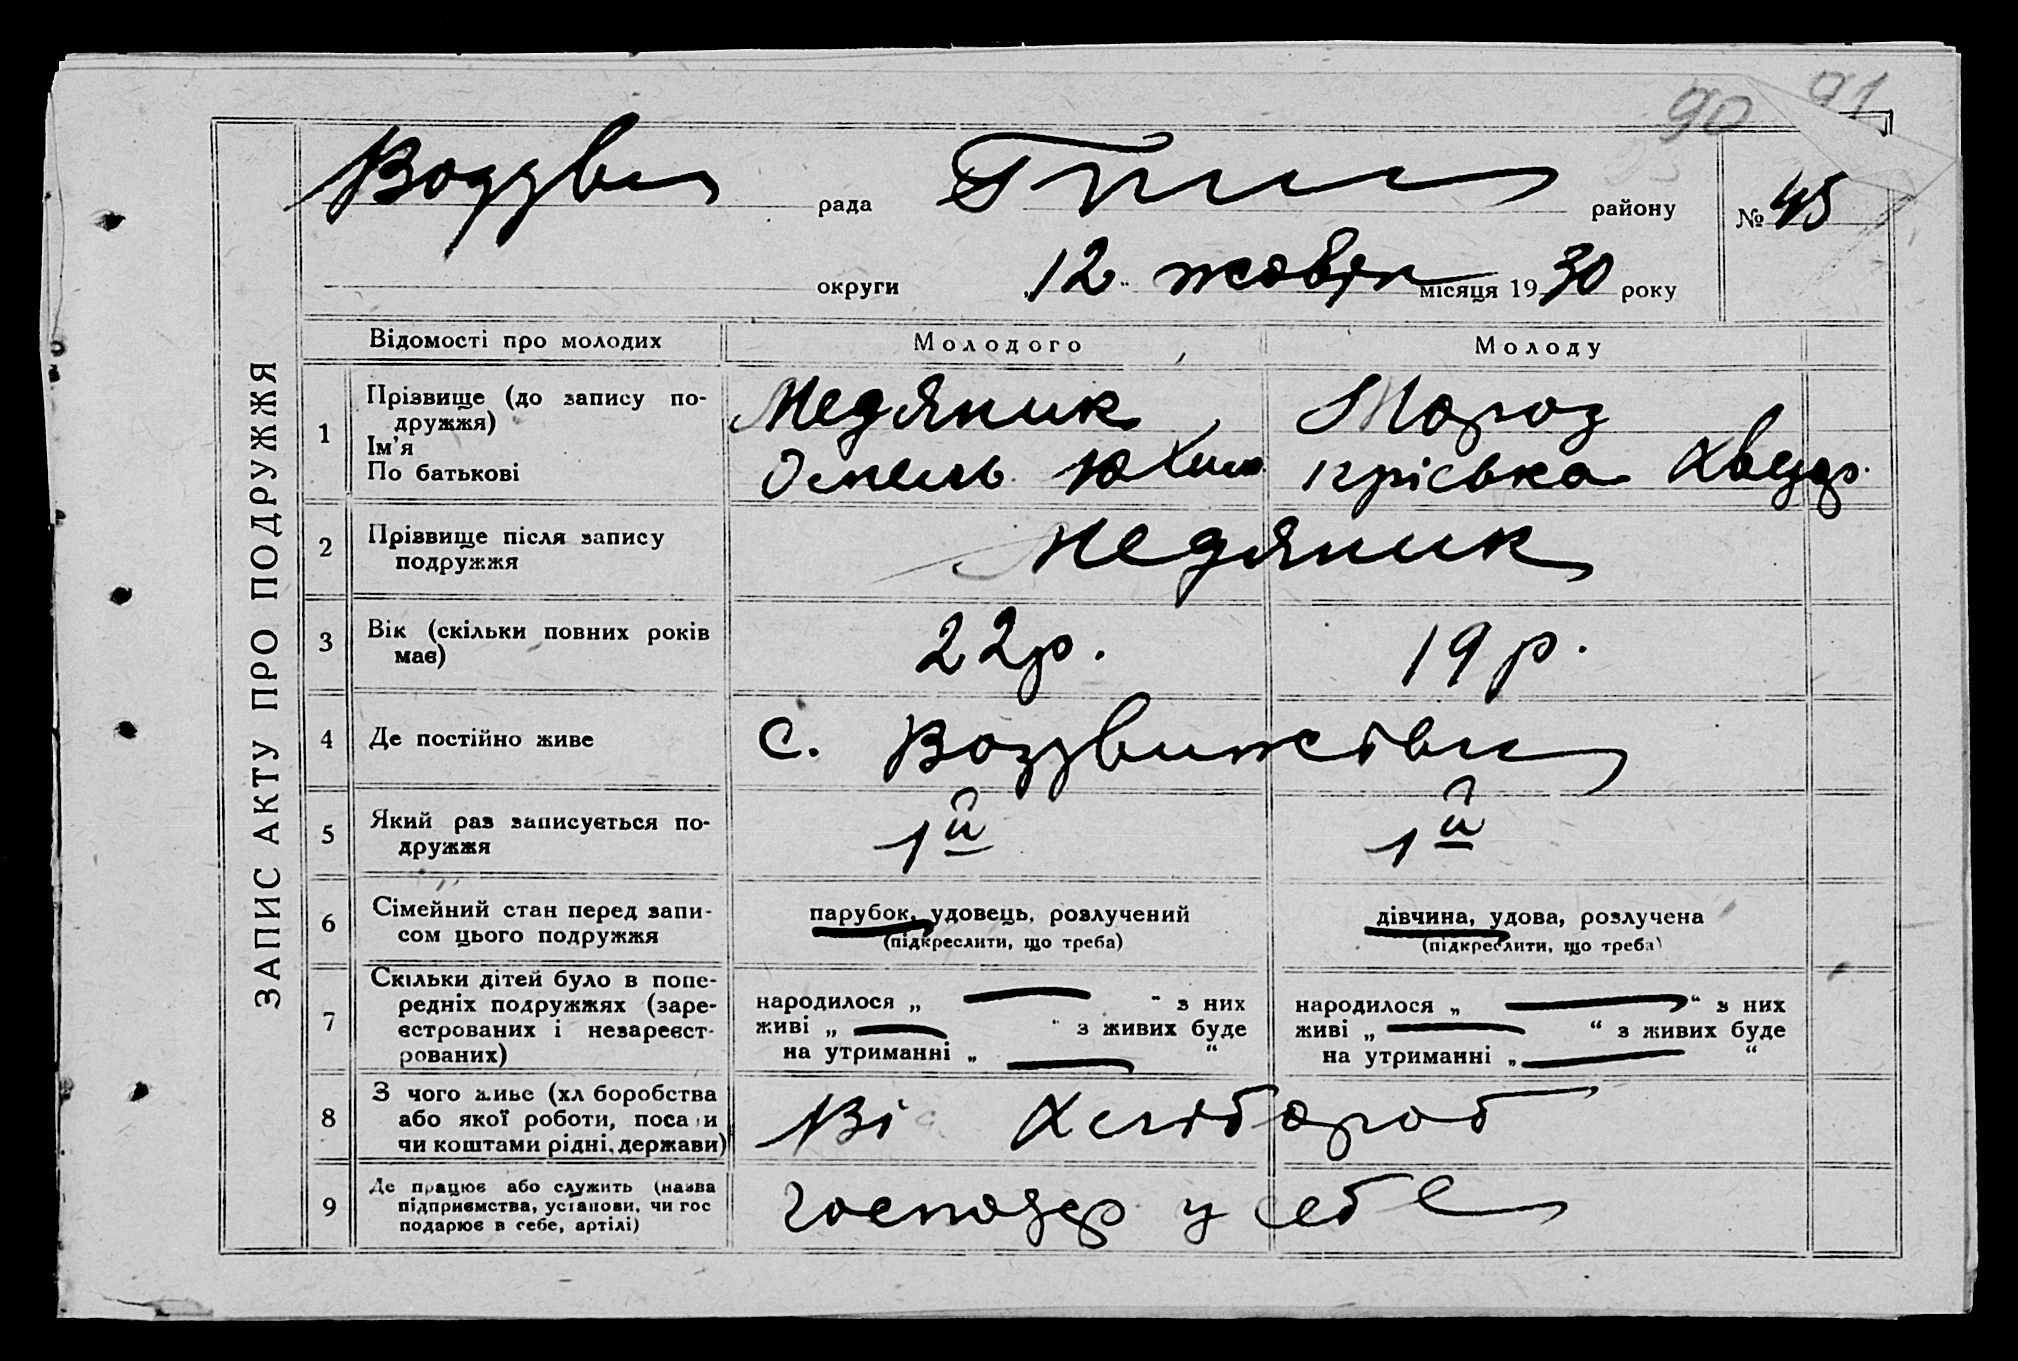 90 91
Воздви рада района № 45
округи „12“ жовтн місяця 1930 року
ЗАПИС АКТУ ПРО ПОДРУЖЖЯ
Відомості про молодих Молодого Молоду
1 Прізвище (до запису по-
дружжя)
Ім'я
По батькові
Медяник
Омель Юхим
Мороз
Пріська Хведор.
2 Прізвище після запису
подружжя
Медяник
3 Вік (скільки повних років
має)
22 р. 19 р.
4 Де постійно живе
с. Воздвижівки
5 Який раз записується по-
дружжя
1й 1й
6 Сімейний стан перед запи-
сом цього подружжя
парубок, удовець, розлучений
(підкреслити, що треба)
дівчина, удова, розлучена
(підкреслити, що треба)
7 Скільки дітей було в попе-
редніх подружжях (заре-
єстрованих і незареєст-
рованих)
народилося „ — “ з них
живі „ — “ з живих буде
на утриманні „ — “
народилося „ — “ з них
живі „ — “ з живих буде
на утриманні „ — “
8 З чого живе (хл боробства
або якої роботи, поса и
чи коштами рідні, держави)
Ві Хлібороб
9 Де працює або служить (назва
підприємства, установи, чи гос
подарює в себе, артілі)
господар у себе